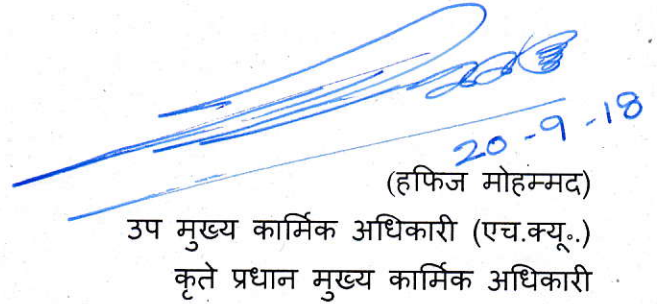 20-9-18
(हफिज मोहम्मद)
उप मुख्य कार्मिक अधिकारी (एच.क्यू॰.)
कृते प्रधान मुख्य कार्मिक अधिकारी